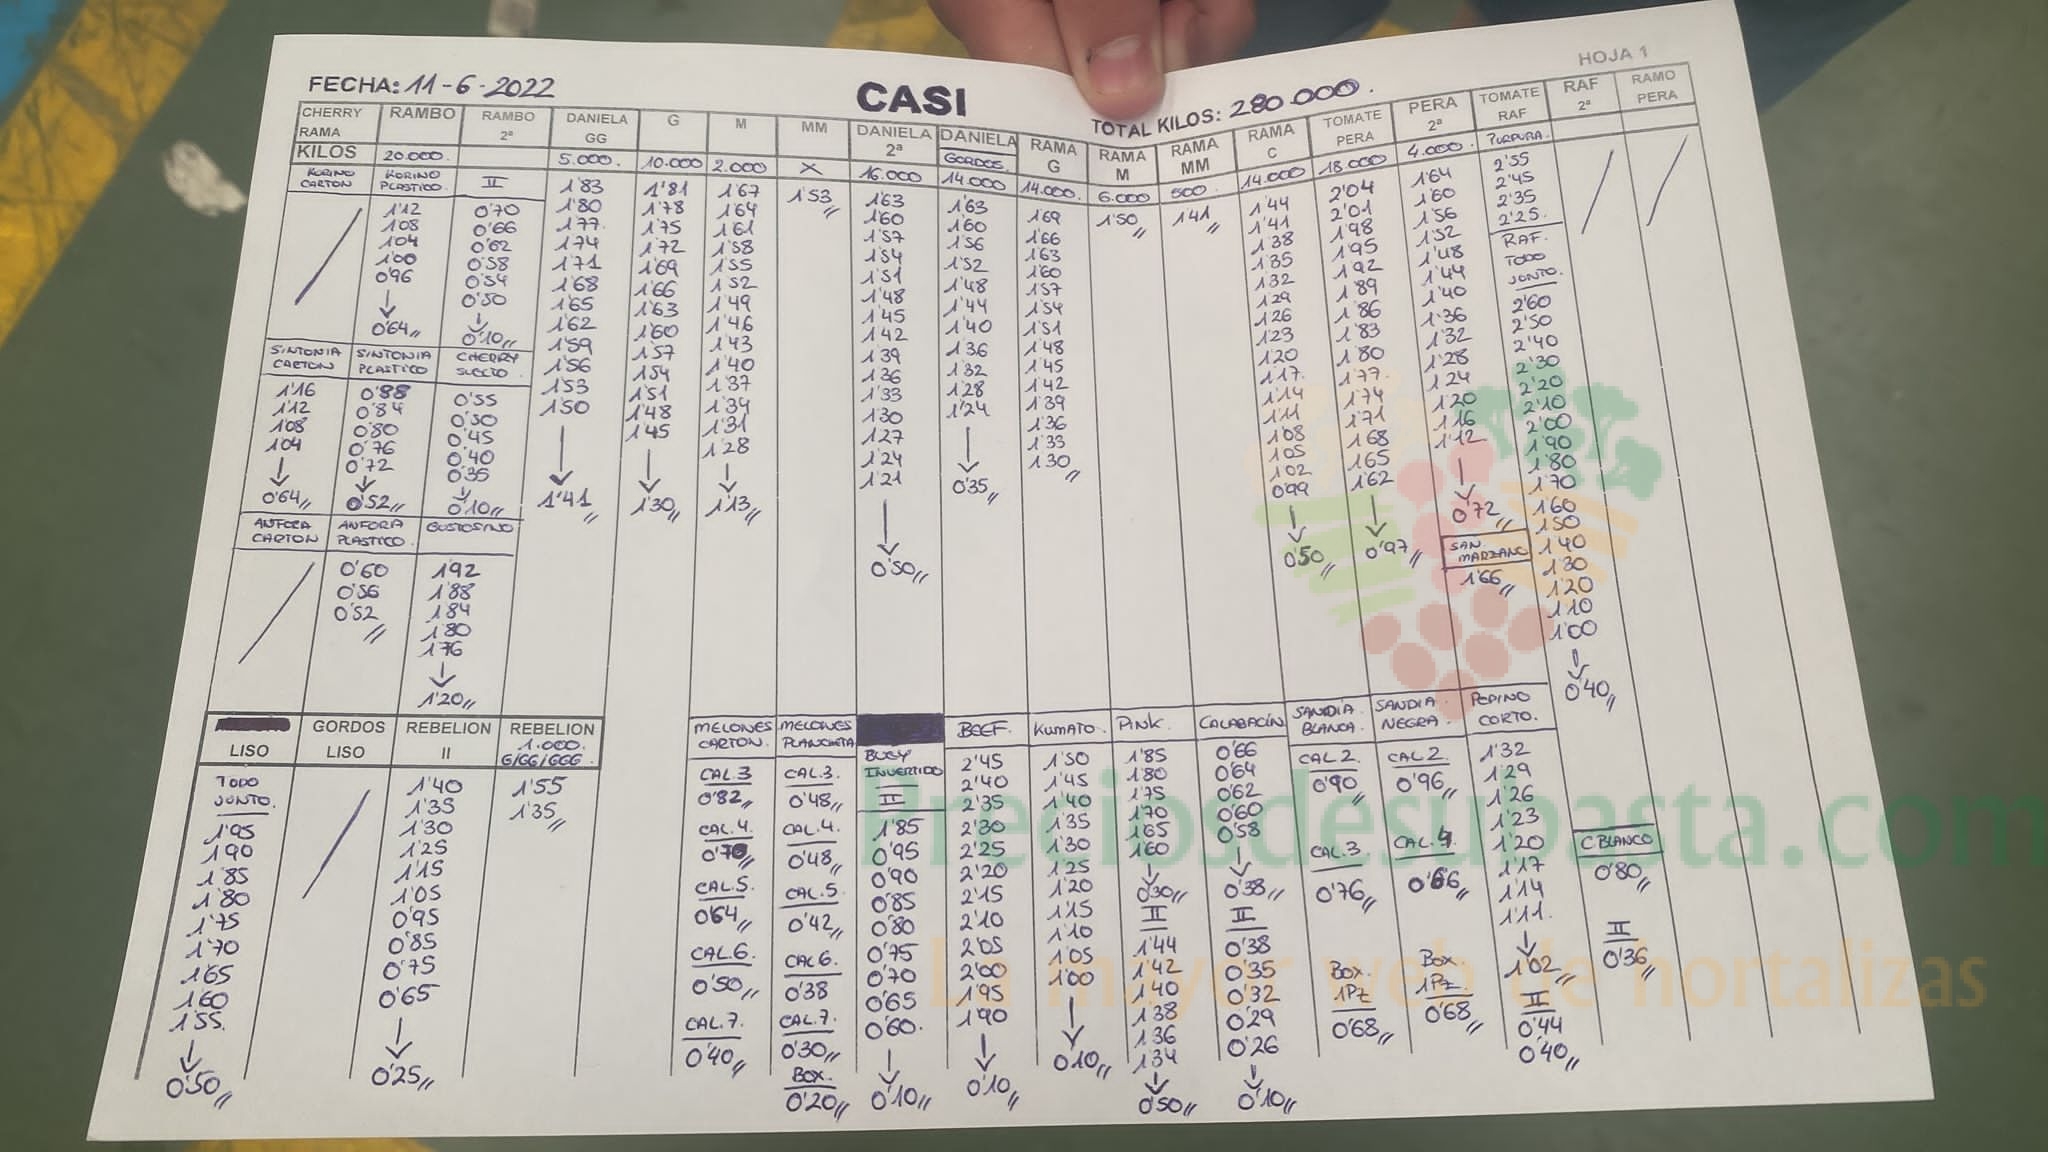 HOJA 1
FECHA: 11-6-2022
CASI
TOTAL KILOS: 280.000.
CHERRY RAMA
RAMBO
RAMBO 2ª
DANIELA GG
G
M
MM
DANIELA 2ª
DANIELA GORDOS
RAMA G
RAMA M
RAMA MM
RAMA C
TOMATE PERA
PERA 2ª
TOMATE RAF
RAF 2ª
RAMO PERA
KILOS
20.000.
5.000.
10.000
2.000
X
16.000
14.000
14.000
6.000
500
14.000
18.000
4.000
PURPURA.
KORINO CARTON
KORINO PLASTICO
1'12
1'08
1'04
1'00
0'96
↓
0'64,,
II
0'70
0'66
0'62
0'58
0'54
0'50
↓
0'10,,
1'83
1'80
1'77
1'74
1'71
1'68
1'65
1'62
1'59
1'56
1'53
1'50
↓
1'41,,
1'81
1'78
1'75
1'72
1'69
1'66
1'63
1'60
1'57
1'54
1'51
1'48
1'45
↓
1'30,,
1'67
1'64
1'61
1'58
1'55
1'52
1'49
1'46
1'43
1'40
1'37
1'34
1'31
1'28
↓
1'13,,
1'53,,
1'63
1'60
1'57
1'54
1'51
1'48
1'45
1'42
1'39
1'36
1'33
1'30
1'27
1'24
1'21
↓
0'50,,
1'63
1'60
1'56
1'52
1'48
1'44
1'40
1'36
1'32
1'28
1'24
↓
0'35,,
1'69
1'66
1'63
1'60
1'57
1'54
1'51
1'48
1'45
1'42
1'39
1'36
1'33
1'30,,
1'50,,
1'41,,
1'44
1'41
1'38
1'35
1'32
1'29
1'26
1'23
1'20
1'17
1'14
1'11
1'08
1'05
1'02
0'99
↓
0'50,,
2'04
2'01
1'98
1'95
1'92
1'89
1'86
1'83
1'80
1'77
1'74
1'71
1'68
1'65
1'62
↓
0'97,,
1'64
1'60
1'56
1'52
1'48
1'44
1'40
1'36
1'32
1'28
1'24
1'20
1'16
1'12
↓
0'72,,
SAN MARZANO
1'66,,
2'55
2'45
2'35
2'25.
RAF.
TODO JUNTO.
2'60
2'50
2'40
2'30
2'20
2'10
2'00
1'90
1'80
1'70
1'60
1'50
1'40
1'30
1'20
1'10
1'00
↓
0'40,,
SINTONIA CARTON
1'16
1'12
1'08
1'04
↓
0'64,,
SINTONIA PLASTICO
0'88
0'84
0'80
0'76
0'72
↓
0'52,,
CHERRY SUELTO.
0'55
0'50
0'45
0'40
0'35
↓
0'10,,
ANFORA CARTON
ANFORA PLASTICO.
0'60
0'56
0'52
,,
GUSTOSINO
1'92
1'88
1'84
1'80
1'76
↓
1'20,,
LISO
TODO JUNTO.
1'95
1'90
1'85
1'80
1'75
1'70
1'65
1'60
1'55.
↓
0'50,,
GORDOS LISO
REBELION II
1'40
1'35
1'30
1'25
1'15
1'05
0'95
0'85
0'75
0'65
↓
0'25,,
REBELION
1.000.
G/GG/GGG.
1'55
1'35,,
MELONES CARTON.
CAL.3
0'82,,
CAL.4.
0'70,,
CAL.5.
0'64,,
CAL.6.
0'50,,
CAL.7.
0'40,,
MELONES PLANCHETA
CAL.3.
0'48,,
CAL.4.
0'48,,
CAL.5.
0'42,,
CAL.6.
0'38
CAL.7.
0'30,,
BOX.
0'20,,
BUEY INVERTIDO
II
1'85
0'95
0'90
0'85
0'80
0'75
0'70
0'65
0'60.
↓
0'10,,
BEEF.
2'45
2'40
2'35
2'30
2'25
2'20
2'15
2'10
2'05
2'00
1'95
1'90
↓
0'10,,
KUMATO.
1'50
1'45
1'40
1'35
1'30
1'25
1'20
1'15
1'10
1'05
1'00
↓
0'10,,
PINK.
1'85
1'80
1'75
1'70
1'65
1'60
↓
0'30,,
II
1'44
1'42
1'40
1'38
1'36
1'34
↓
0'50,,
CALABACÍN
0'66
0'64
0'62
0'60
0'58
↓
0'38,,
II
0'38
0'35
0'32
0'29
0'26
↓
0'10,,
SANDIA BLANCA.
CAL 2.
0'90,,
CAL.3.
0'76,,
BOX.
1Pz
0'68,,
SANDIA NEGRA.
CAL 2.
0'96,,
CAL.4.
0'66,,
BOX.
1Pz.
0'68,,
PEPINO CORTO.
1'32
1'29
1'26
1'23
1'20
1'17
1'14
1'11.
↓
1'02,,
II
0'44
0'40,,
C.BLANCO
0'80,,
II
0'36,,
Preciosdesubasta.com
La mayor web de hortalizas